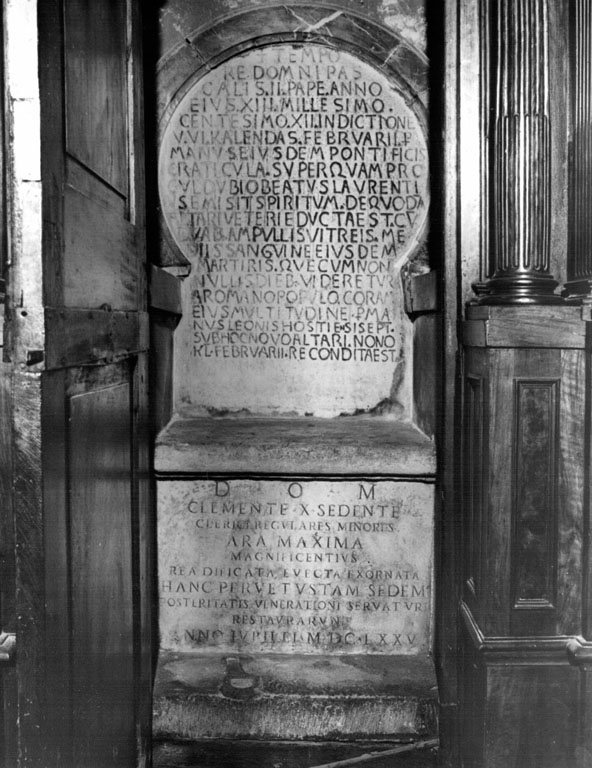 TEMPO
RE DOMNI PAS
CALIS·II·PAPE·ANNO
EIVS·XIII·MILLESIMO·
CENTESIMO·XII·INDICTIONE
V·VI·KALENDAS·FEBRVARII·P
MANVS EIVSDEM PONTIFICIS
CRATICVLA·SVPER QVAM PRO
CVL DVBIO BEATVS LAVRENTI
SEMISIT SPIRITVM·DE QVODA
ALTARI VETERI EDVCTA EST·CV
AMPVLLIS VITREIS·
SANGVINE EIVSDEM
MARTIRIS·QVE CVM NON
NVLLIS DIEB·VIDERETVR
A ROMANO POPVLO CORAM
EIVS MVLTITVDINE·P MA
NVS LEONIS HOSTIESIS EPT·
SVB HOC NOVO ALTARI·NONO
KL·FEBRVARII·RECONDITA EST·
D O M
CLEMENTE·X·SEDENTE
CLERICI REGVLARES MINORES
ARA MAXIMA
MAGNIFICENTIVS
REAEDIFICATA EVECTA EXORNATA
HANC PERVETVSTAM SEDEM
POSTERITATIS VENERATIONI SERVATVRI
RESTAVRARVNT
ANNO IVPILEI M·DC·LXXV